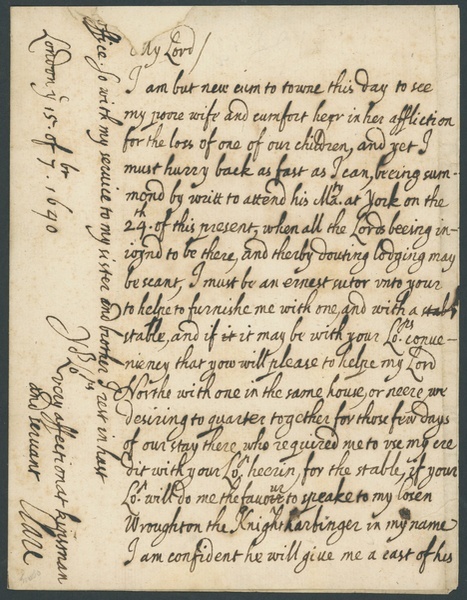 My Lord /
I am but new cum to towne this day to see
my poore wife and cumfort heer in her affliction
for the loss of one of our children, and yet I
must hurry back as fast as I can, beeing sum-
mond by writt to attend his Ma:ty at York on the
24th of this present, when all the Lords beeing in-
ioynd to be there, and therby douting lodging may
be scant, I must be an ernest sutor vnto your
to helpe to furnishe me with one, and with a stabl
stable, and if it it may be with your Lo:ps conve-
niency that yow will please to helpe my Lord
Northe with one in the same house, or neere, we
desiring to quarter together for those few days
of our stay there, who required me to vse my cre
dit with your Lo:p heerin, for the stable, if your
Lo:p will do me the favour to speake to my cosen
Wroughton the Knight harbinger in my name
I am confident he will give me a cast of his
office. So with my service to my sister and brother I rest in hast
Yr Lops
Lovery affectionat kinsman
and servant
London ye 15. of 7.br 1690